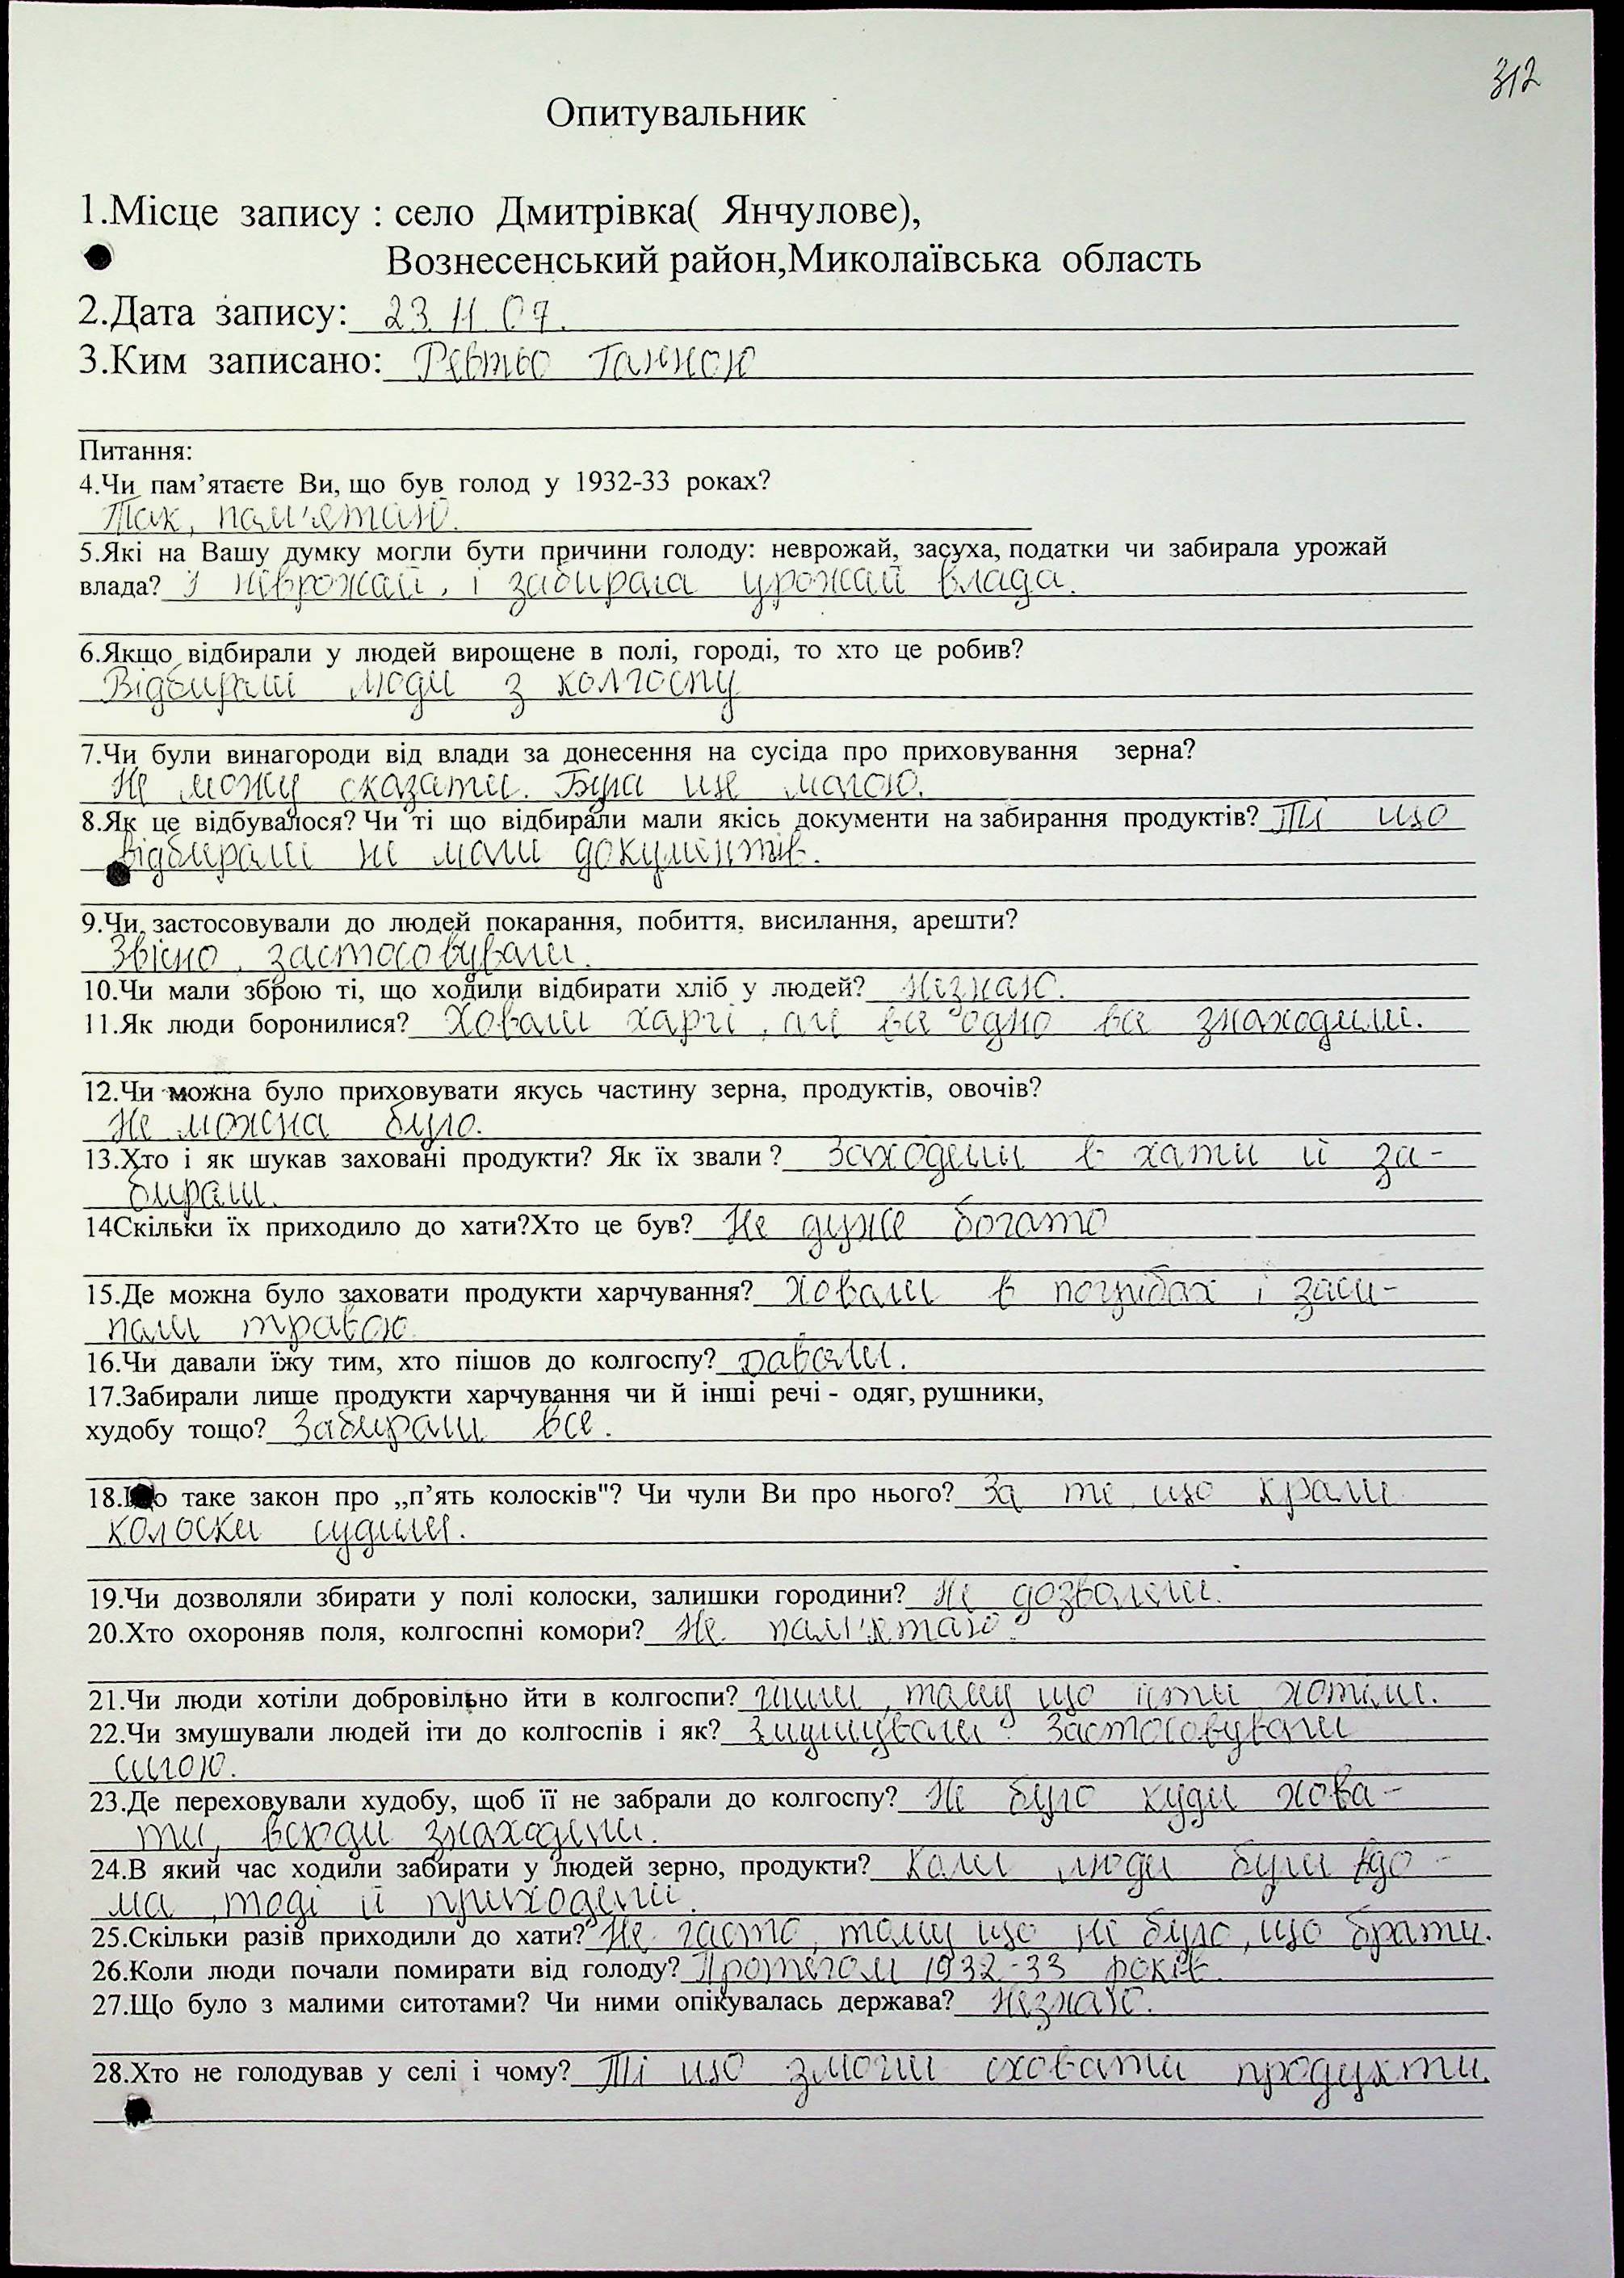 312
Опитувальник
1.Місце запису : село Дмитрівка( Янчулове),
Вознесенський район,Миколаївська область
2.Дата запису: 23.11.07.
3.Ким записано: Ганною
Питання:
4.Чи пам’ятаєте Ви, що був голод у 1932-33 роках?
Так, пам'ятаю.
5.Які на Вашу думку могли бути причини голоду: неврожай, засуха, податки чи забирала урожай
влада? І неврожай, і забирала урожай влада.
6.Якщо відбирали у людей вирощене в полі, городі, то хто це робив?
Відбирали люди з колгоспу
7.Чи були винагороди від влади за донесення на сусіда про приховування зерна?
Не можу сказати. Була ще малою.
8.Як це відбувалося? Чи ті що відбирали мали якісь документи на забирання продуктів? Ті що
відбирали не мали документів.
9.Чи застосовували до людей покарання, побиття, висилання, арешти?
Звісно, застосовували.
10.Чи мали зброю ті, що ходили відбирати хліб у людей? Незнаю.
11.Як люди боронилися? Ховали харчі, але все одно все знаходили.
12.Чи можна було приховувати якусь частину зерна, продуктів, овочів?
Не можна було.
13.Хто і як шукав заховані продукти? Як їх звали ? Заходили в хати й за-
бирали.
14Скільки їх приходило до хати?Хто це був? Не дуже богато
15.Де можна було заховати продукти харчування? Ховали в погрібах і заси-
пали травою
16.Чи давали їжу тим, хто пішов до колгоспу? Давали.
17.Забирали лише продукти харчування чи й інші речі - одяг, рушники,
худобу тощо? Забирали все.
18.Що таке закон про „п’ять колосків"? Чи чули Ви про нього? За те що крали
колоски судили.
19.Чи дозволяли збирати у полі колоски, залишки городини? Не дозволяли.
20.Хто охороняв поля, колгоспні комори? Не пам'ятаю.
21.Чи люди хотіли добровільно йти в колгоспи? йшли, тому що їсти хотіли.
22.Чи змушували людей іти до колгоспів і як? Змушували. Застосовували
силою.
23.Де переховували худобу, щоб її не забрали до колгоспу? Не було куди хова-
ти, всюди знаходили.
24.В який час ходили забирати у людей зерно, продукти? Коли люди були вдо-
ма, тоді й приходили.
25.Скільки разів приходили до хати? Не часто, тому що не було, що брати.
26.Коли люди почали помирати від голоду? Протягом 1932-33 років.
27.Що було з малими ситотами? Чи ними опікувалась держава? Незнаю.
28.Хто не голодував у селі і чому? Ті що змогли сховати продукти.